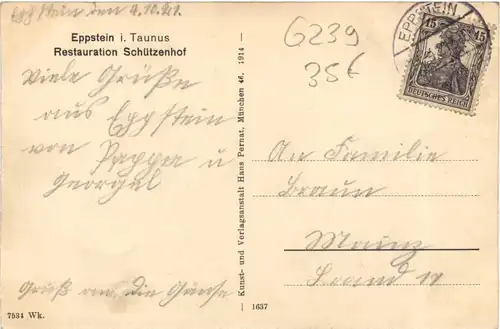 Eppstein den 4.10.21.
Eppstein i. Taunus
Restauration Schützenhof
Viele Grüße
aus Eppstein
von Pappa u
Gruß an die
7534 Wk.
Kunst- und Verlagsanstalt Hans Pernat, München 46. 1914 —
1637
G239
35€
EPPSTEIN
15 15
DEUTSCHES REICH
An Familie
Braun
Mainz